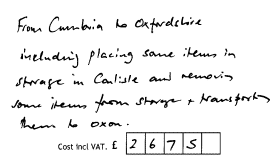 From Cumbria to Oxfordshire
including placing some items in
storage in Carlisle and removing
some items from storage + transporting
them to oxon.
Cost incl VAT. £ 2 6 7 5